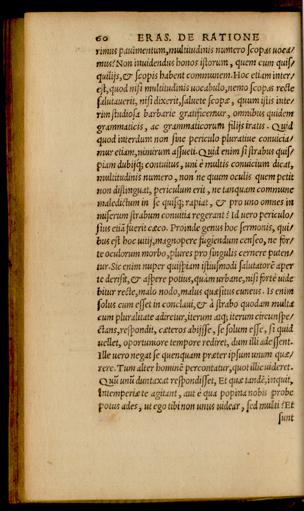 60 ERAS. DE RATIONE
rimus pauimentum, multitudinis numero scopas voca⸗
mus? Non inuidendus honos istorum, quem cum quis⸗
quilijs, & scopis habent communem. Hoc etiam inter⸗
est, quod nisi multitudinis vocabulo, nemo scopas recte
salutauerit, nisi dixerit, saluete scopæ, quum istis inte⸗
rim studiosa barbarie gratificemur, omnibus quidem
grammaticis, ac grammaticorum filijs iratis. Quid
quod interdum non sine periculo pluratiue conuicia⸗
mur etiam, nimirum assueti. Quid enim si strabus quis⸗
piam dubijsq; contuitus, uni è multis conuicium dicat,
multitudinis numero, non ne quum oculis quem petit
non distinguat, periculum erit, ne tanquam commune
maledictum in se quisq; rapiat, & pro uno omnes in
miserum strabum conuitia regerant? Id uero periculo⸗
sius etiã fuerit cæco. Proinde genus hoc sermonis, qui⸗
bus est hoc uitij, magnopere fugiendum censeo, ne for⸗
te oculorum morbo, plures pro singulis cernere puten⸗
tur. Sic enim nuper quispiam istiusmodi salutatorẽ aper
te derisit, & aspere potius, quàm urbane, nisi fortè uide
bitur recte, malo nodo, malus quæsitus cuneus. Is enim
solus cum esset in conclaui, & à strabo quodam multa
cum pluralitate adiretur, iterum atq; iterum circunspe⸗
ctans, respondit, cæteros abijsse, se solum esse, si quid
uellet, oportuniore tempore rediret, dum illi adessent.
Ille uero negat se quenquam præter ipsum unum quæ⸗
rere. Tum alter hominẽ percontatur, quot illic uideret.
Quũ unũ duntaxat respondisset, Et quæ tandẽ, inquit,
intemperiæ te agitant, aut è qua popina nobis probe
potus ades, ut ego tibi non unus uidear, sed multi? Et
sunt